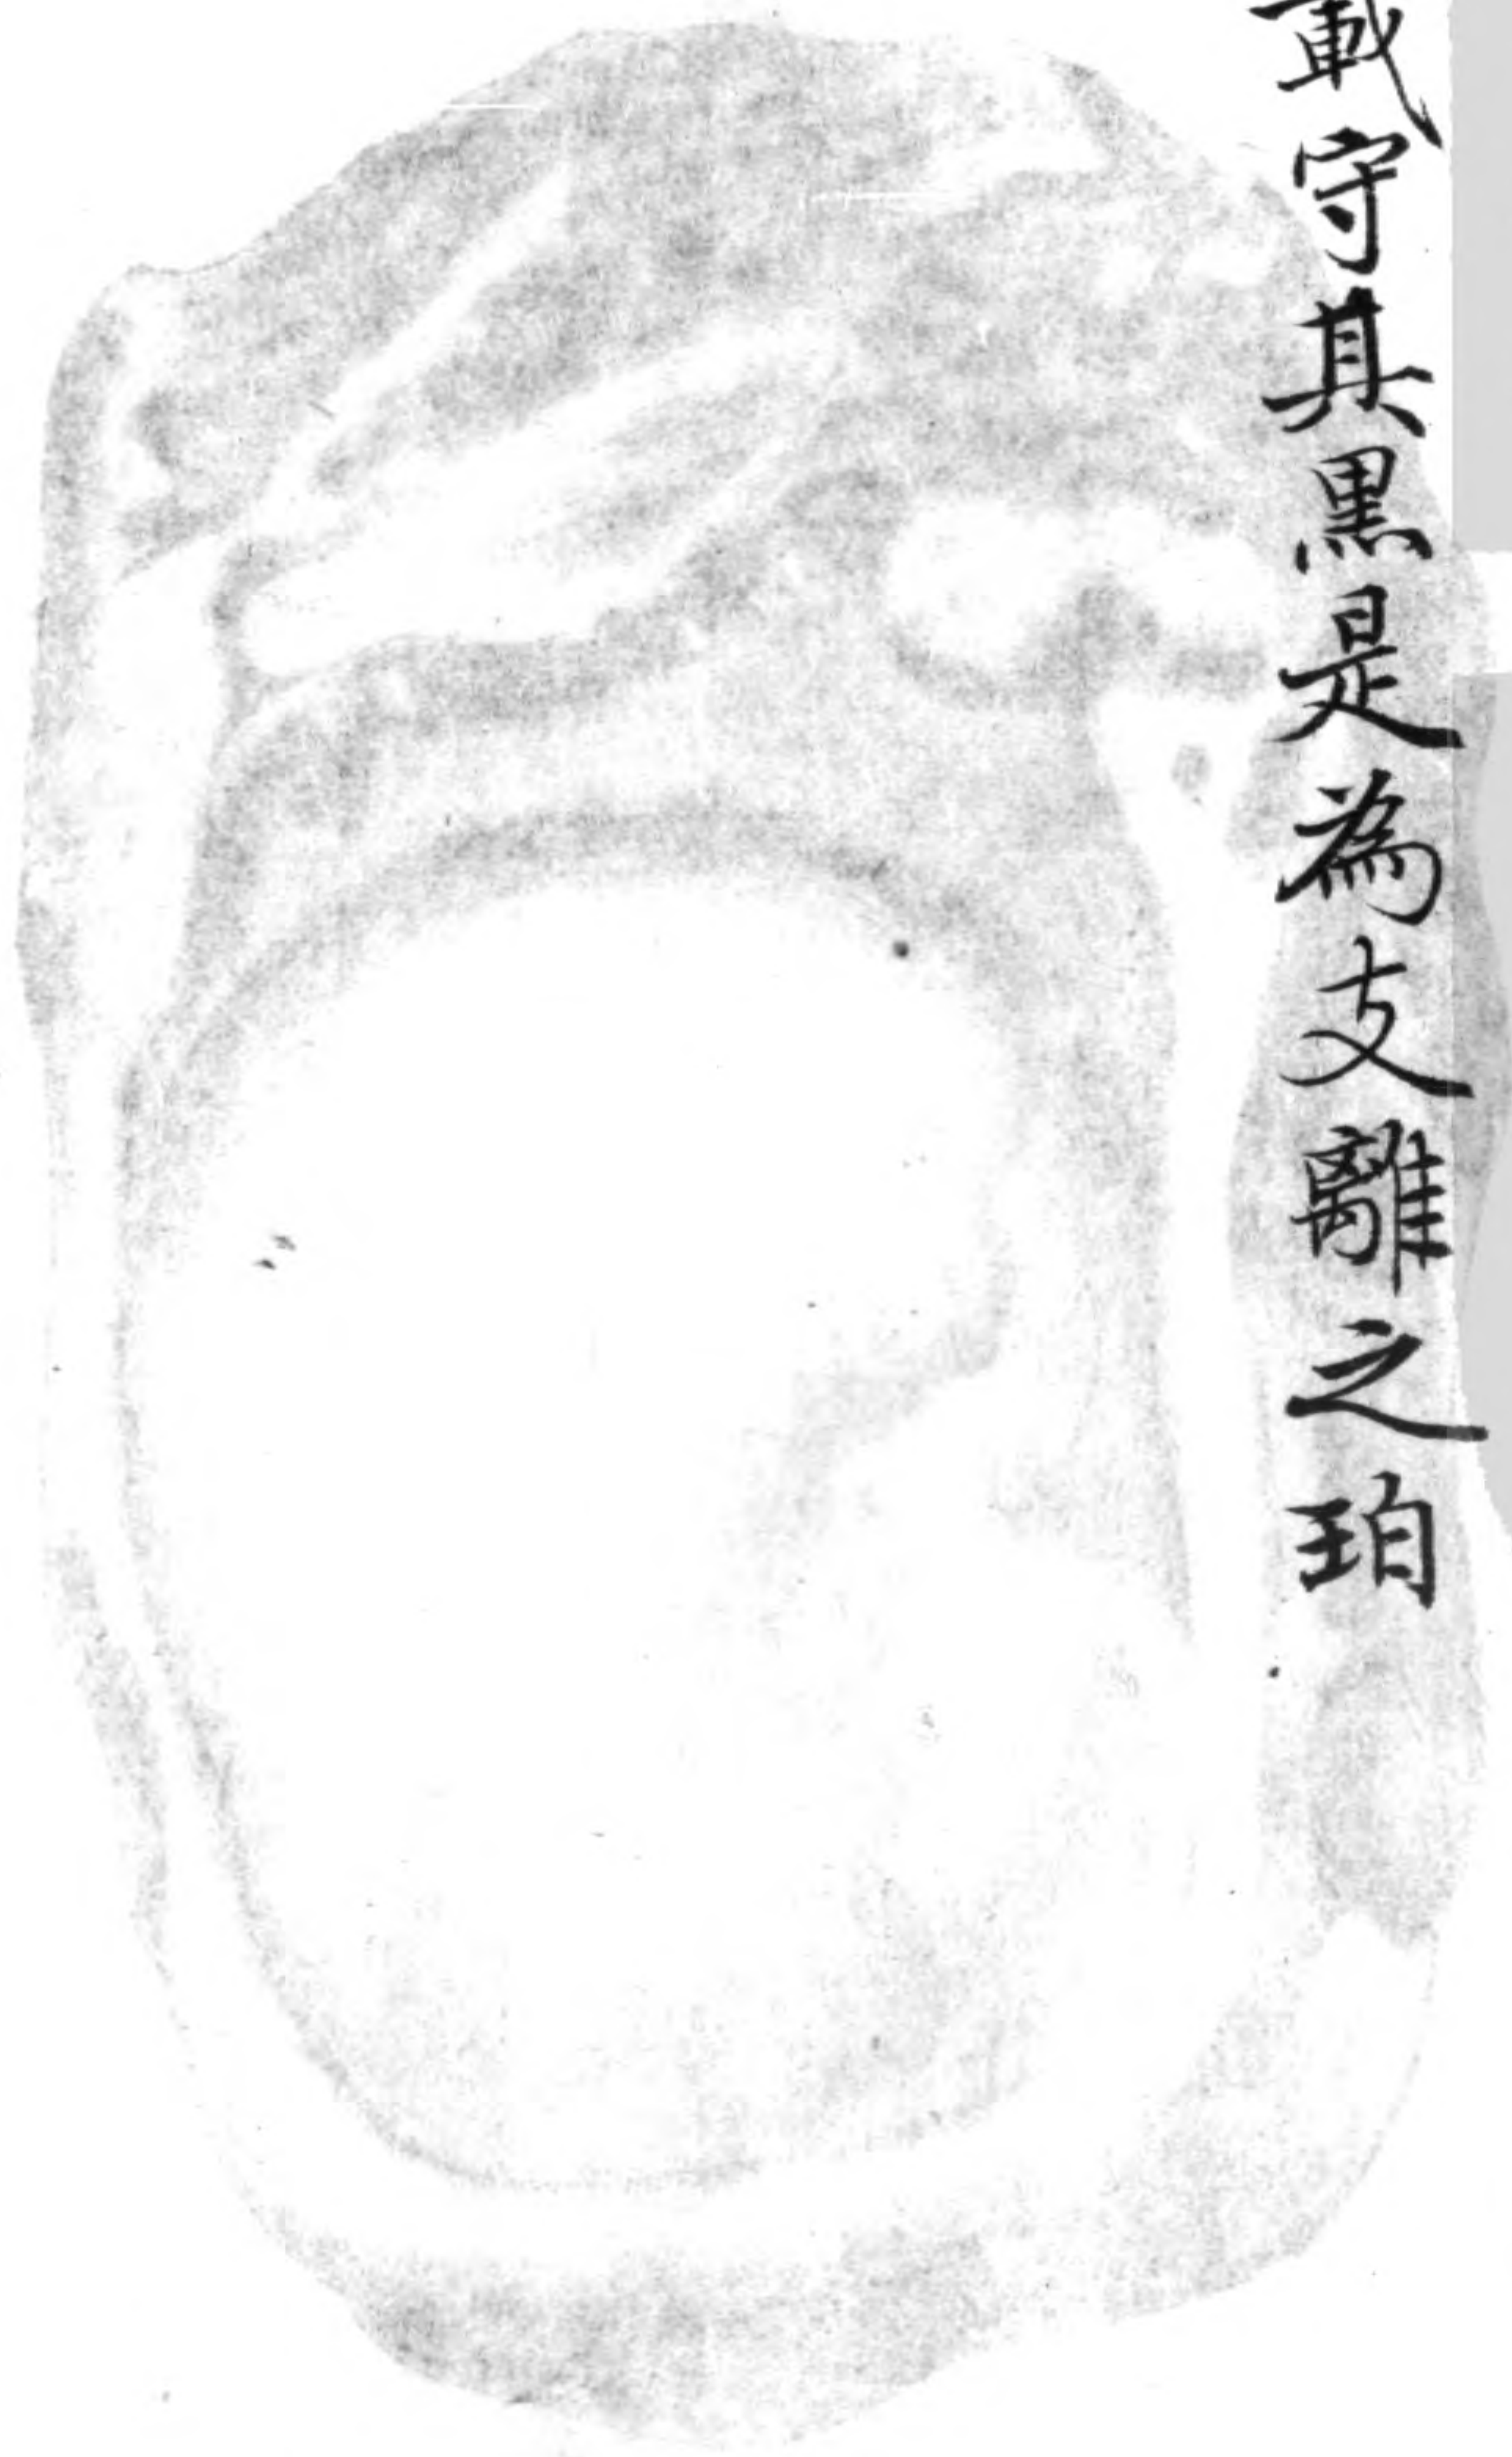 載守其黒是為支離之珀